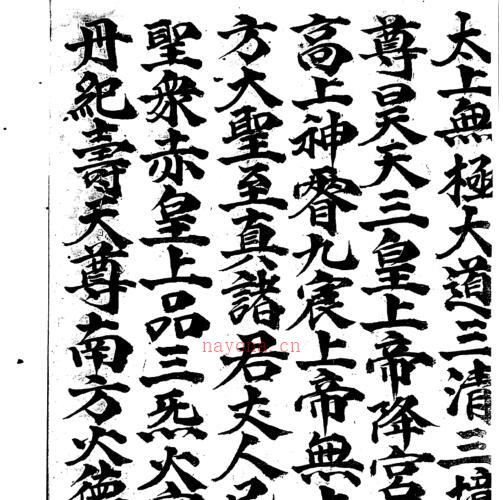 太上無極大道三清三境
尊昊天三皇上帝降宮
高上神霄九宸上帝無上
方大聖至真諸君丈人
聖眾赤皇上品三炁火
丹紀壽天尊南方火德
nayona.cn